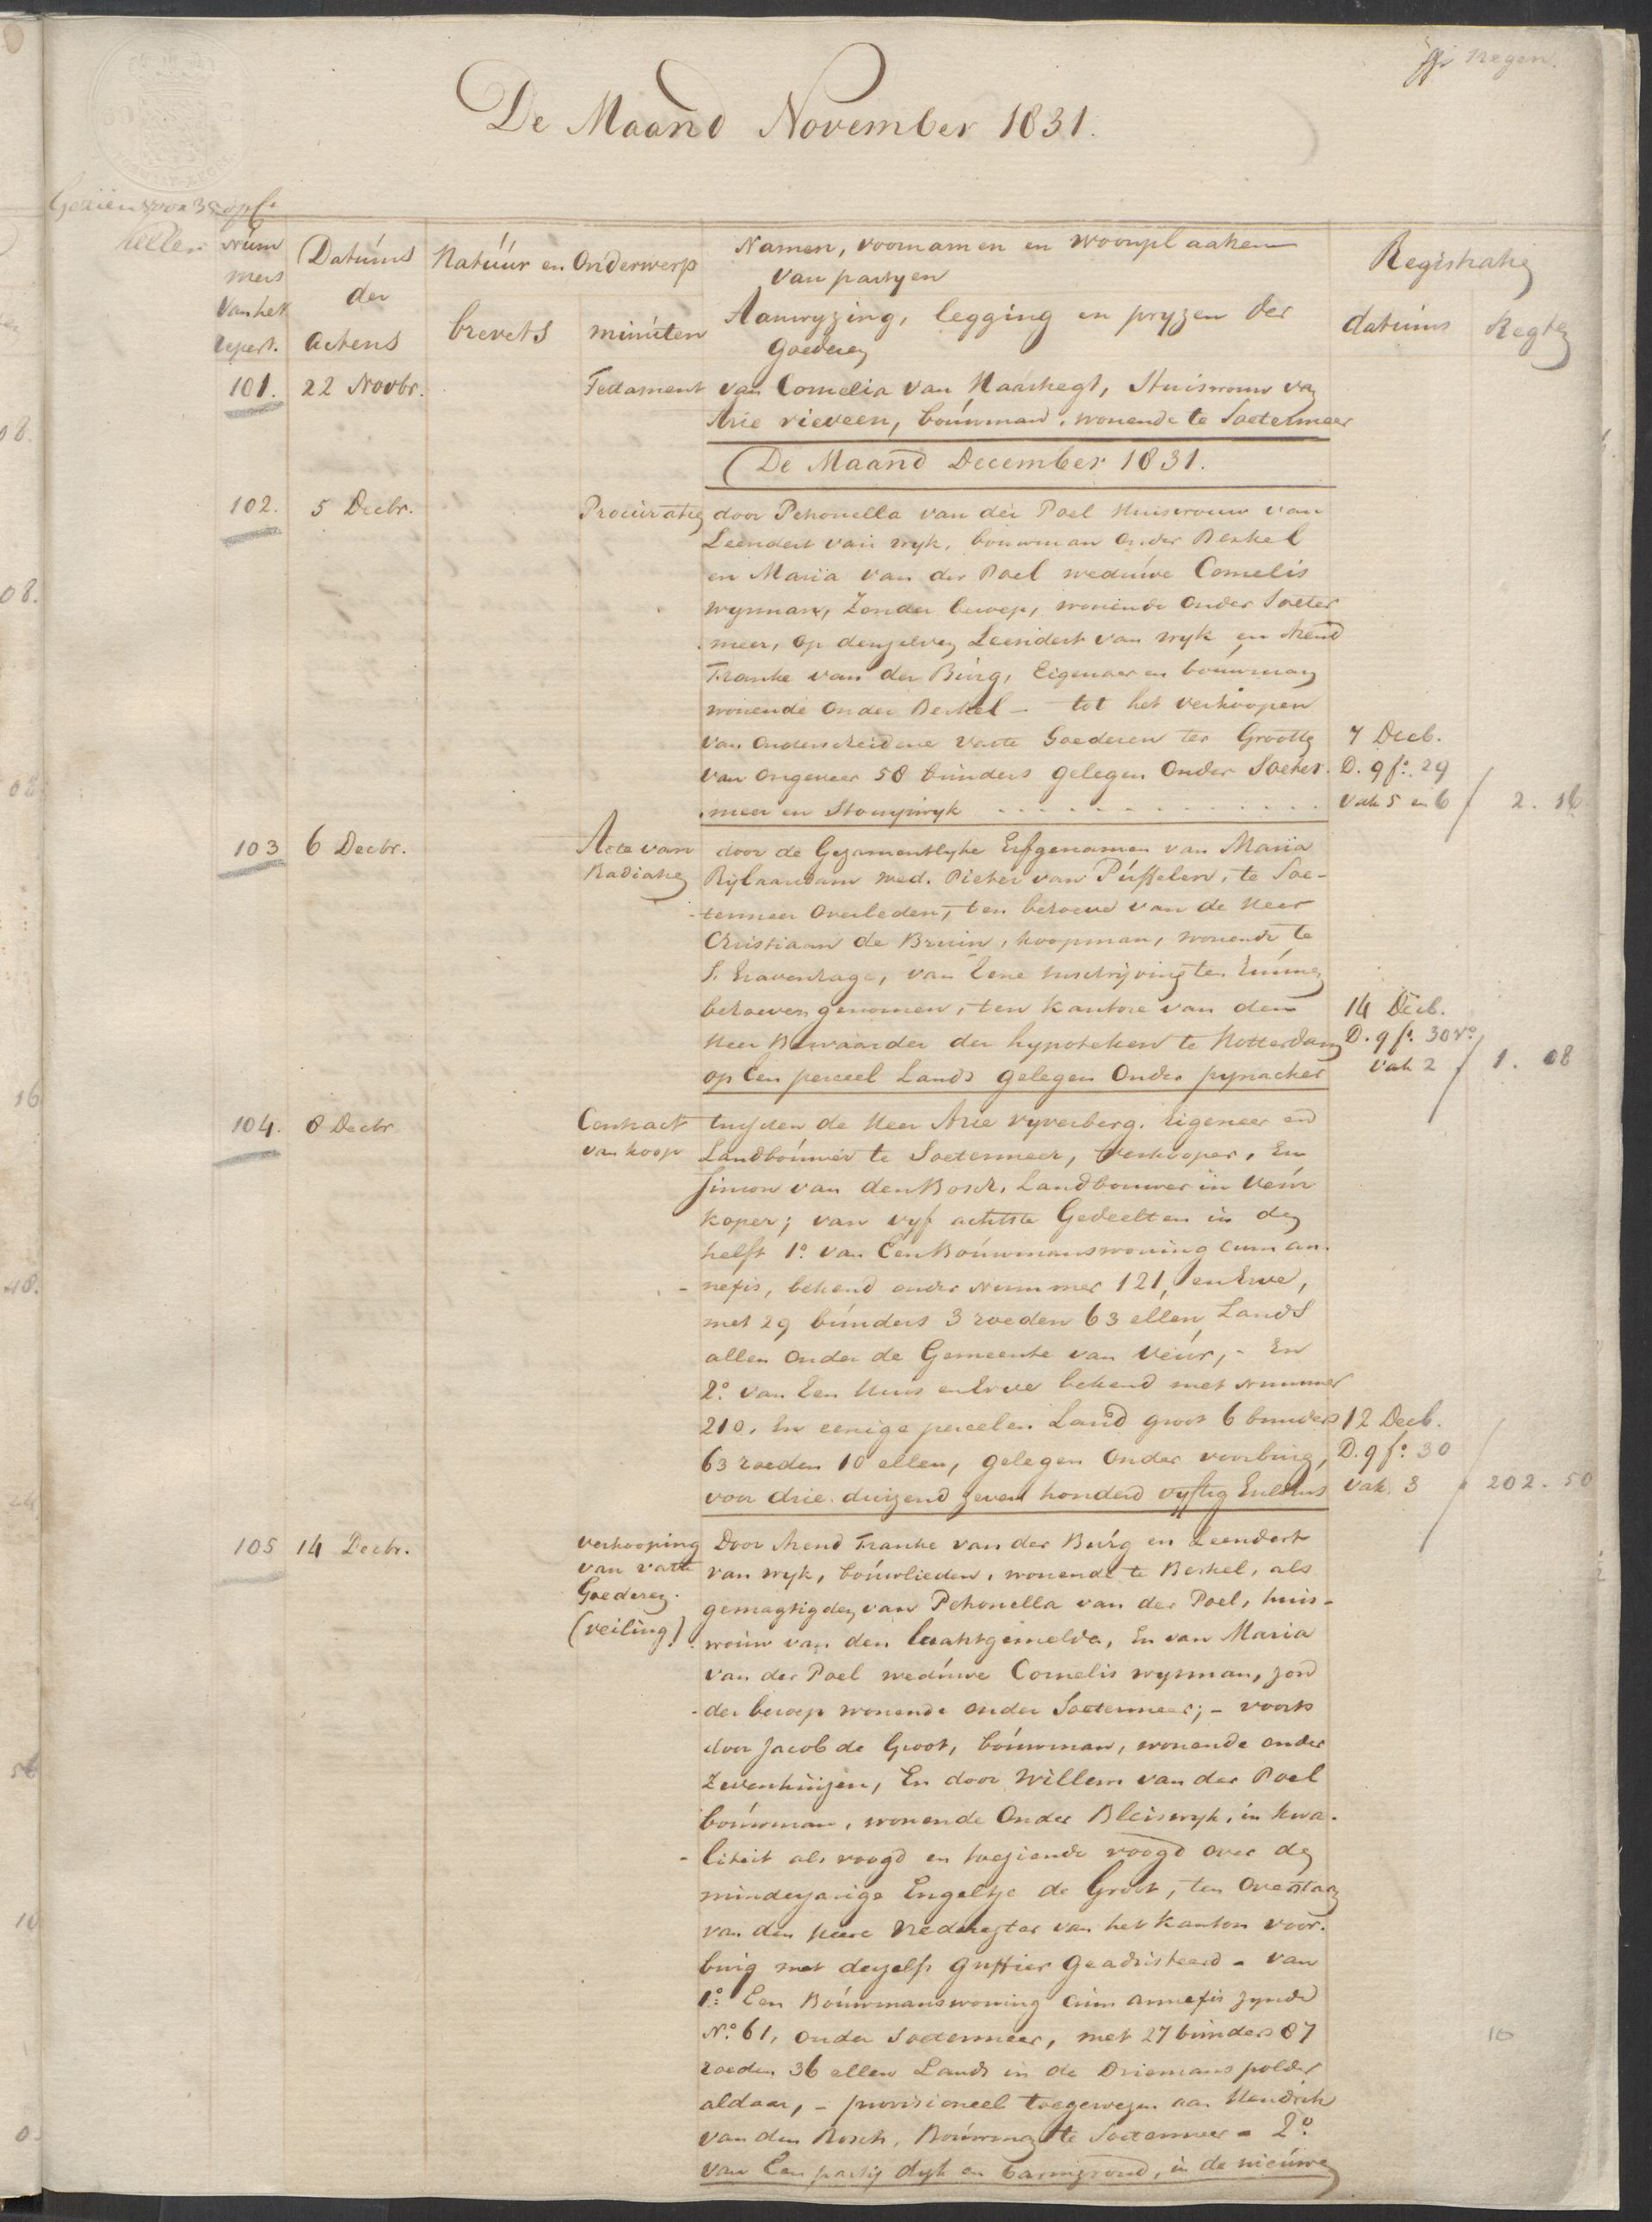 De Maand November 1831.
Num
mers
van het
repert.
Datums
der
actens
Natuur en Onderwerp
brevets
minuten
Namen, voornamen en woonplaatsen
van partyen
Aanwyzing, legging en pryzen der
Goederen
Registratie
datums
Regten
101. 22 Novbr. Testament van Cornelia van Haastregt, Huisvrouw van
Arie rieveen, bouwman, wonende te Soetermeer
De Maand December 1831.
102. 5 Decbr. Procuratie door Petronella van der Poel Huisvrouw van
Leendert van wyk, bouwman onder Berkel
en Maria van der Poel weduwe Cornelis
wynman, Zonder beroep, wonende onder Soeter
meer, op denzelven Leendert van wyk en Arend
Franke van der Burg, Eigenaer en bouwman
wonende onder Berkel - tot het verkoopen
van onderscheidene vaste Goederen ter Grootte 7 Decb.
van ongeveer 58 bunders gelegen onder Soeter- D. 9 fo. 29
meer en Stompwyk vak 5 en 6 / 2. 16
103 6 Decbr. Acte van door de Gezamentlyke Erfgenamen van Maria
Radiatie Rylaardam wed. Pieter van Puffelen, te Soe-
termeer overleden, ten behoeve van de Heer
Christiaan de Bruin, koopman, wonende te
S. Gravenhage, van Eene inschrijving ten Zunnen
behoeven genomen, ten kantore van den 14 Decb.
Heer Bewaarder der hypoteken te Rotterdam D. 9 fo. 30 vo.
op Een perceel Lands gelegen Onder pynacker vak 2 / 1. 08
104. 8 Decbr Contract tusschen de Heer Arie vyverberg, Eigeneer en
van koop Landbouwer te Soetermeer, verkooper, En
Simon van den Bosch, Landbouwer in Veur
koper; van vyf achtste Gedeelten in de
helft 1o. van Een Bouwmanswoning cum an-
nexis, bekend onder Nummer 121, en Erve,
met 29 bunders 3 roeden 63 ellen Lands
allen onder de Gemeente van Veur, - En
2o. van Een Huis en Erve bekend met Nummer
210, En eenige percelen Land groot 6 bunders 12 Decb.
63 roeden 10 ellen, gelegen Onder voorburg, D. 9 fo. 30
voor drie duizend zeven honderd vyftig Guldens vak 3 / 202. 50
105 14 Decbr. verkooping Door Arend Franke van der Burg en Leendert
van vaste van wyk, bouwlieden, wonende te Berkel, als
Goederen. gemagtigden van Petronella van der Poel, huis-
(veiling) vrouw van den laatstgemelden, En van Maria
van der Poel weduwe Cornelis wynman, zon
der beroep wonende onder Soetermeer; - voorts
door Jacob de Groot, bouwman, wonende onder
Zevenhuizen, En door Willem van der Poel
bouwman, wonende Onder Bleiswyk, in kwa-
liteit als voogd en toeziende voogd over de
minderjarige Engeltje de Groot, ten Overstaan
van den heere vrederegter van het kanton voor-
burg met deszelfs Griffier Geadsisteerd - van
1o. Een Bouwmanswoning cum annexis zynde
No. 61, onder Soetermeer, met 27 bunders 87
roeden 36 ellen Lands in de Driemans polder
aldaar, - provisioneel toegewezen aan Hendrik
van den Bosch, Bouwman te Soetermeer - 2o.
van Een partij dyk en barmgrond, in de nieuwe